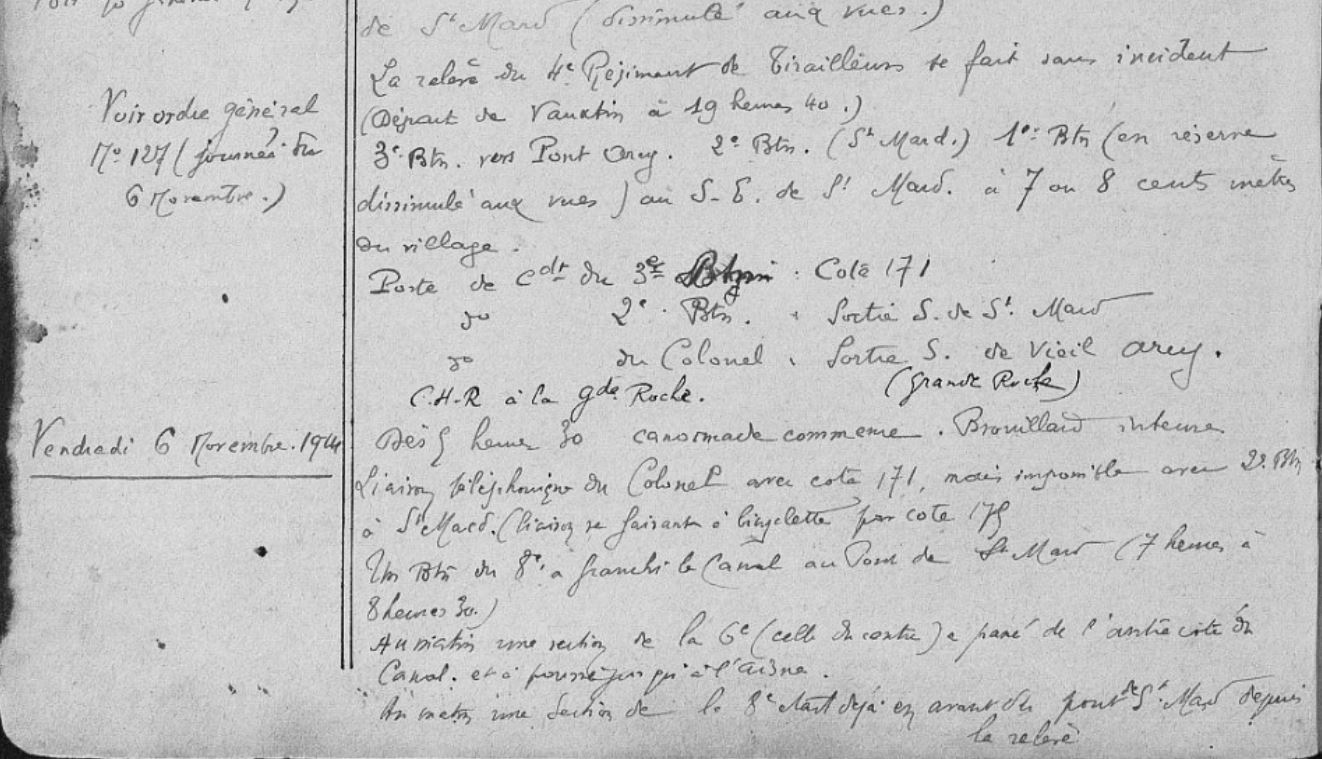 de St Mard (dissimulé aux vues.)
La relève du 4e Régiment de Tirailleurs se fait sans incident
(Départ de Vauxtin à 19 heures 40.)
Voir ordre général
No 127 (journée du
6 Novembre.)
3e Btn. vers Pont Arcy. 2e Btn. (St Mard.) 1er Btn (en réserve
dissimulé aux vues) au S-E. de St Mard. à 7 ou 8 cents mètres
du village.
Poste de Cdt du 3e Btn : Cote 171
do 2e Btn. : Sortie S. de St. Mard
do du Colonel : Sortie S. de Vieil Arcy.
C.H.R à la gde Roche. (Grande Roche)
Vendredi 6 Novembre. 1914
Dès 5 heures 30 canonnade commence. Brouillard intense
Liaison téléphonique du Colonel avec cote 171, mais impossible avec 2e Btn
à St Mard. (liaison se faisant à bicyclette par cote 175
Un Btn du 8e a franchi le Canal au Pont de St Mard (7 heures à
8 heures 30.)
Au matin une section de la 6e (celle du centre) a passé de l'autre côté du
Canal. et a poussé jusqu'à l'Aisne.
Au matin une Section de la 8e était déjà en avant du pont de St. Mard depuis
la relève